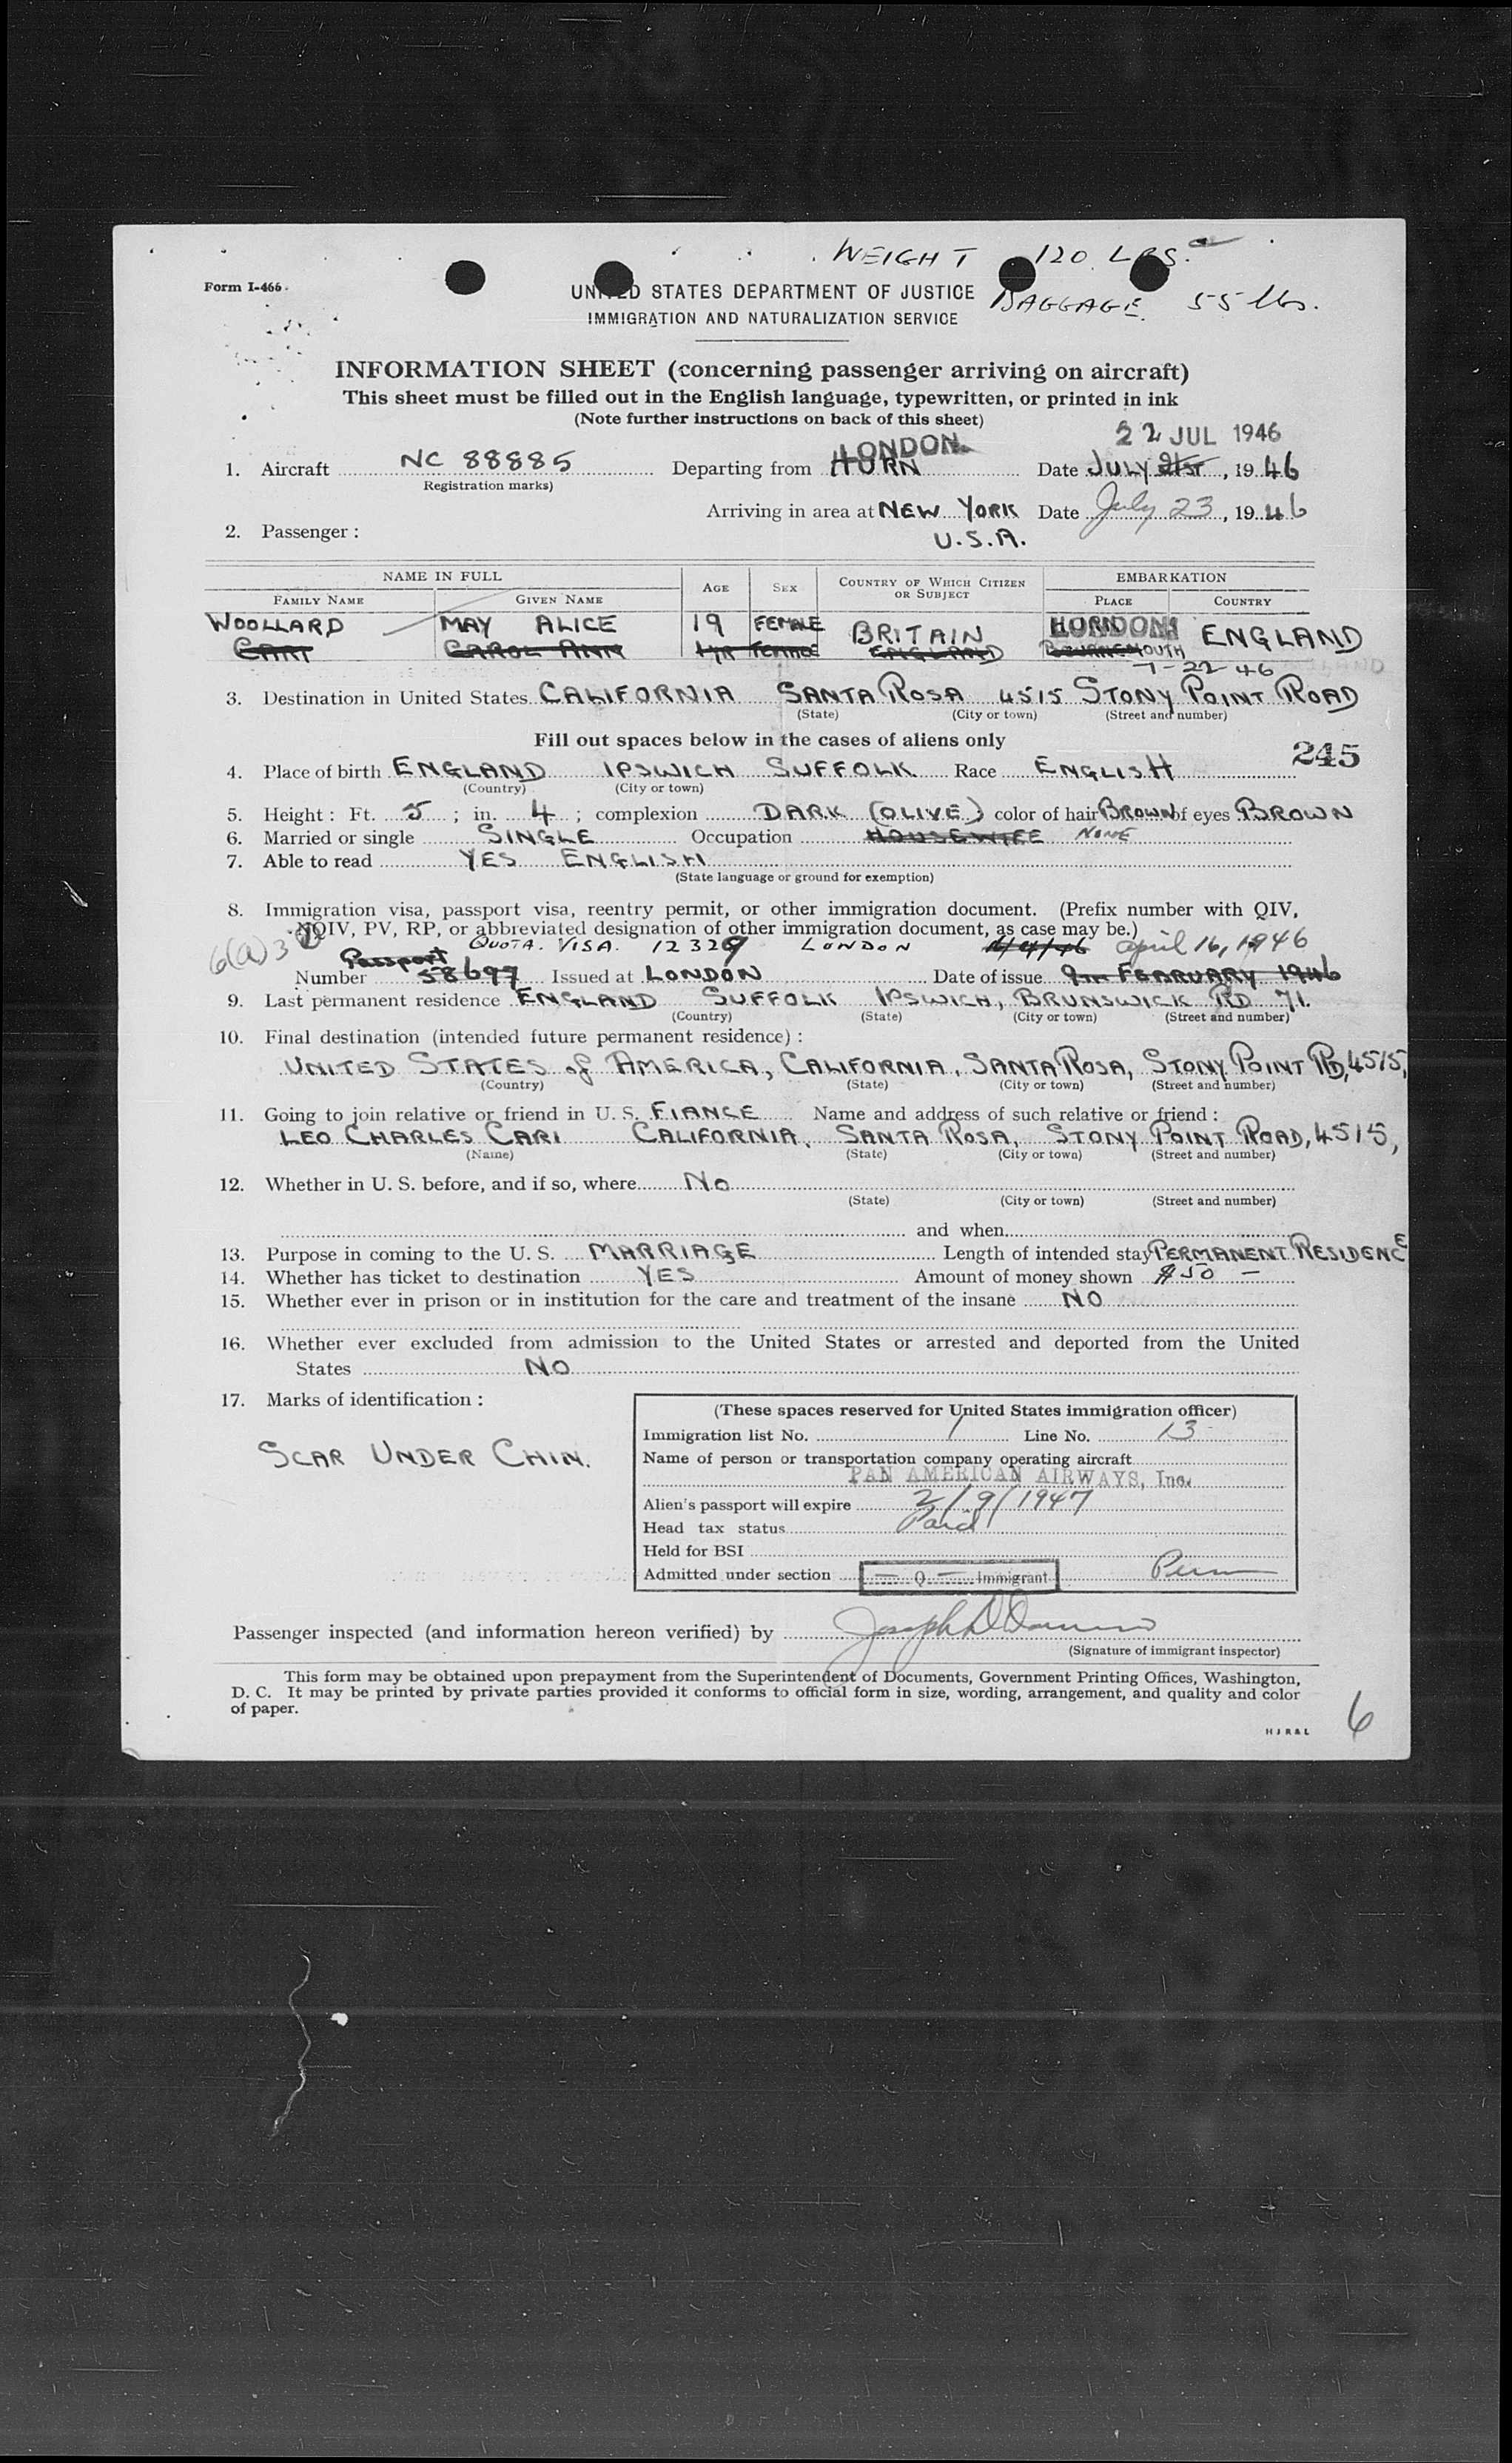 WEIGHT 120 LBS.
Form I-466
UNITED STATES DEPARTMENT OF JUSTICE
BAGGAGE 55 lbs.
IMMIGRATION AND NATURALIZATION SERVICE
INFORMATION SHEET (concerning passenger arriving on aircraft)
This sheet must be filled out in the English language, typewritten, or printed in ink
(Note further instructions on back of this sheet)
22 JUL 1946
LONDON
1. Aircraft NC 88885 Departing from HURN Date JULY 21ST, 1946
(Registration marks)
Arriving in area at NEW YORK Date July 23, 1946
U.S.A.
2. Passenger :
NAME IN FULL AGE SEX COUNTRY OF WHICH CITIZEN OR SUBJECT EMBARKATION
FAMILY NAME GIVEN NAME PLACE COUNTRY
WOOLLARD MAY ALICE 19 FEMALE BRITAIN LONDON ENGLAND
CARI CAROL ANN 1YR FEMALE ENGLAND BOURNEMOUTH
7-22-46
3. Destination in United States CALIFORNIA SANTA ROSA 4515 STONY POINT ROAD
(State) (City or town) (Street and number)
Fill out spaces below in the cases of aliens only
245
4. Place of birth ENGLAND IPSWICH SUFFOLK Race ENGLISH
(Country) (City or town)
5. Height : Ft. 5 ; in. 4 ; complexion DARK (OLIVE) color of hair BROWN of eyes BROWN
6. Married or single SINGLE Occupation HOUSEWIFE NONE
7. Able to read YES ENGLISH
(State language or ground for exemption)
8. Immigration visa, passport visa, reentry permit, or other immigration document. (Prefix number with QIV,
NQIV, PV, RP, or abbreviated designation of other immigration document, as case may be.)
6(a)3 QUOTA VISA 12329 LONDON 16/4/46 April 16, 1946
Passport
Number 58697 Issued at LONDON Date of issue 9TH FEBRUARY 1946
9. Last permanent residence ENGLAND SUFFOLK IPSWICH, BRUNSWICK RD 71.
(Country) (State) (City or town) (Street and number)
10. Final destination (intended future permanent residence) :
UNITED STATES of AMERICA, CALIFORNIA, SANTA ROSA, STONY POINT RD, 4515,
(Country) (State) (City or town) (Street and number)
11. Going to join relative or friend in U. S. FIANCE Name and address of such relative or friend :
LEO CHARLES CARI CALIFORNIA, SANTA ROSA, STONY POINT ROAD, 4515,
(Name) (State) (City or town) (Street and number)
12. Whether in U. S. before, and if so, where NO
(State) (City or town) (Street and number)
and when
13. Purpose in coming to the U. S. MARRIAGE Length of intended stay PERMANENT RESIDENCE
14. Whether has ticket to destination YES Amount of money shown $50 —
15. Whether ever in prison or in institution for the care and treatment of the insane NO
16. Whether ever excluded from admission to the United States or arrested and deported from the United
States NO
17. Marks of identification :
SCAR UNDER CHIN.
(These spaces reserved for United States immigration officer)
Immigration list No. 1 Line No. 13
Name of person or transportation company operating aircraft
PAN AMERICAN AIRWAYS, Inc.
Alien's passport will expire 2/9/1947
Head tax status Paid
Held for BSI
Admitted under section — Q — Immigrant Perm
Passenger inspected (and information hereon verified) by Joseph D.
(Signature of immigrant inspector)
This form may be obtained upon prepayment from the Superintendent of Documents, Government Printing Offices, Washington,
D. C. It may be printed by private parties provided it conforms to official form in size, wording, arrangement, and quality and color
of paper.
H J R & L
6